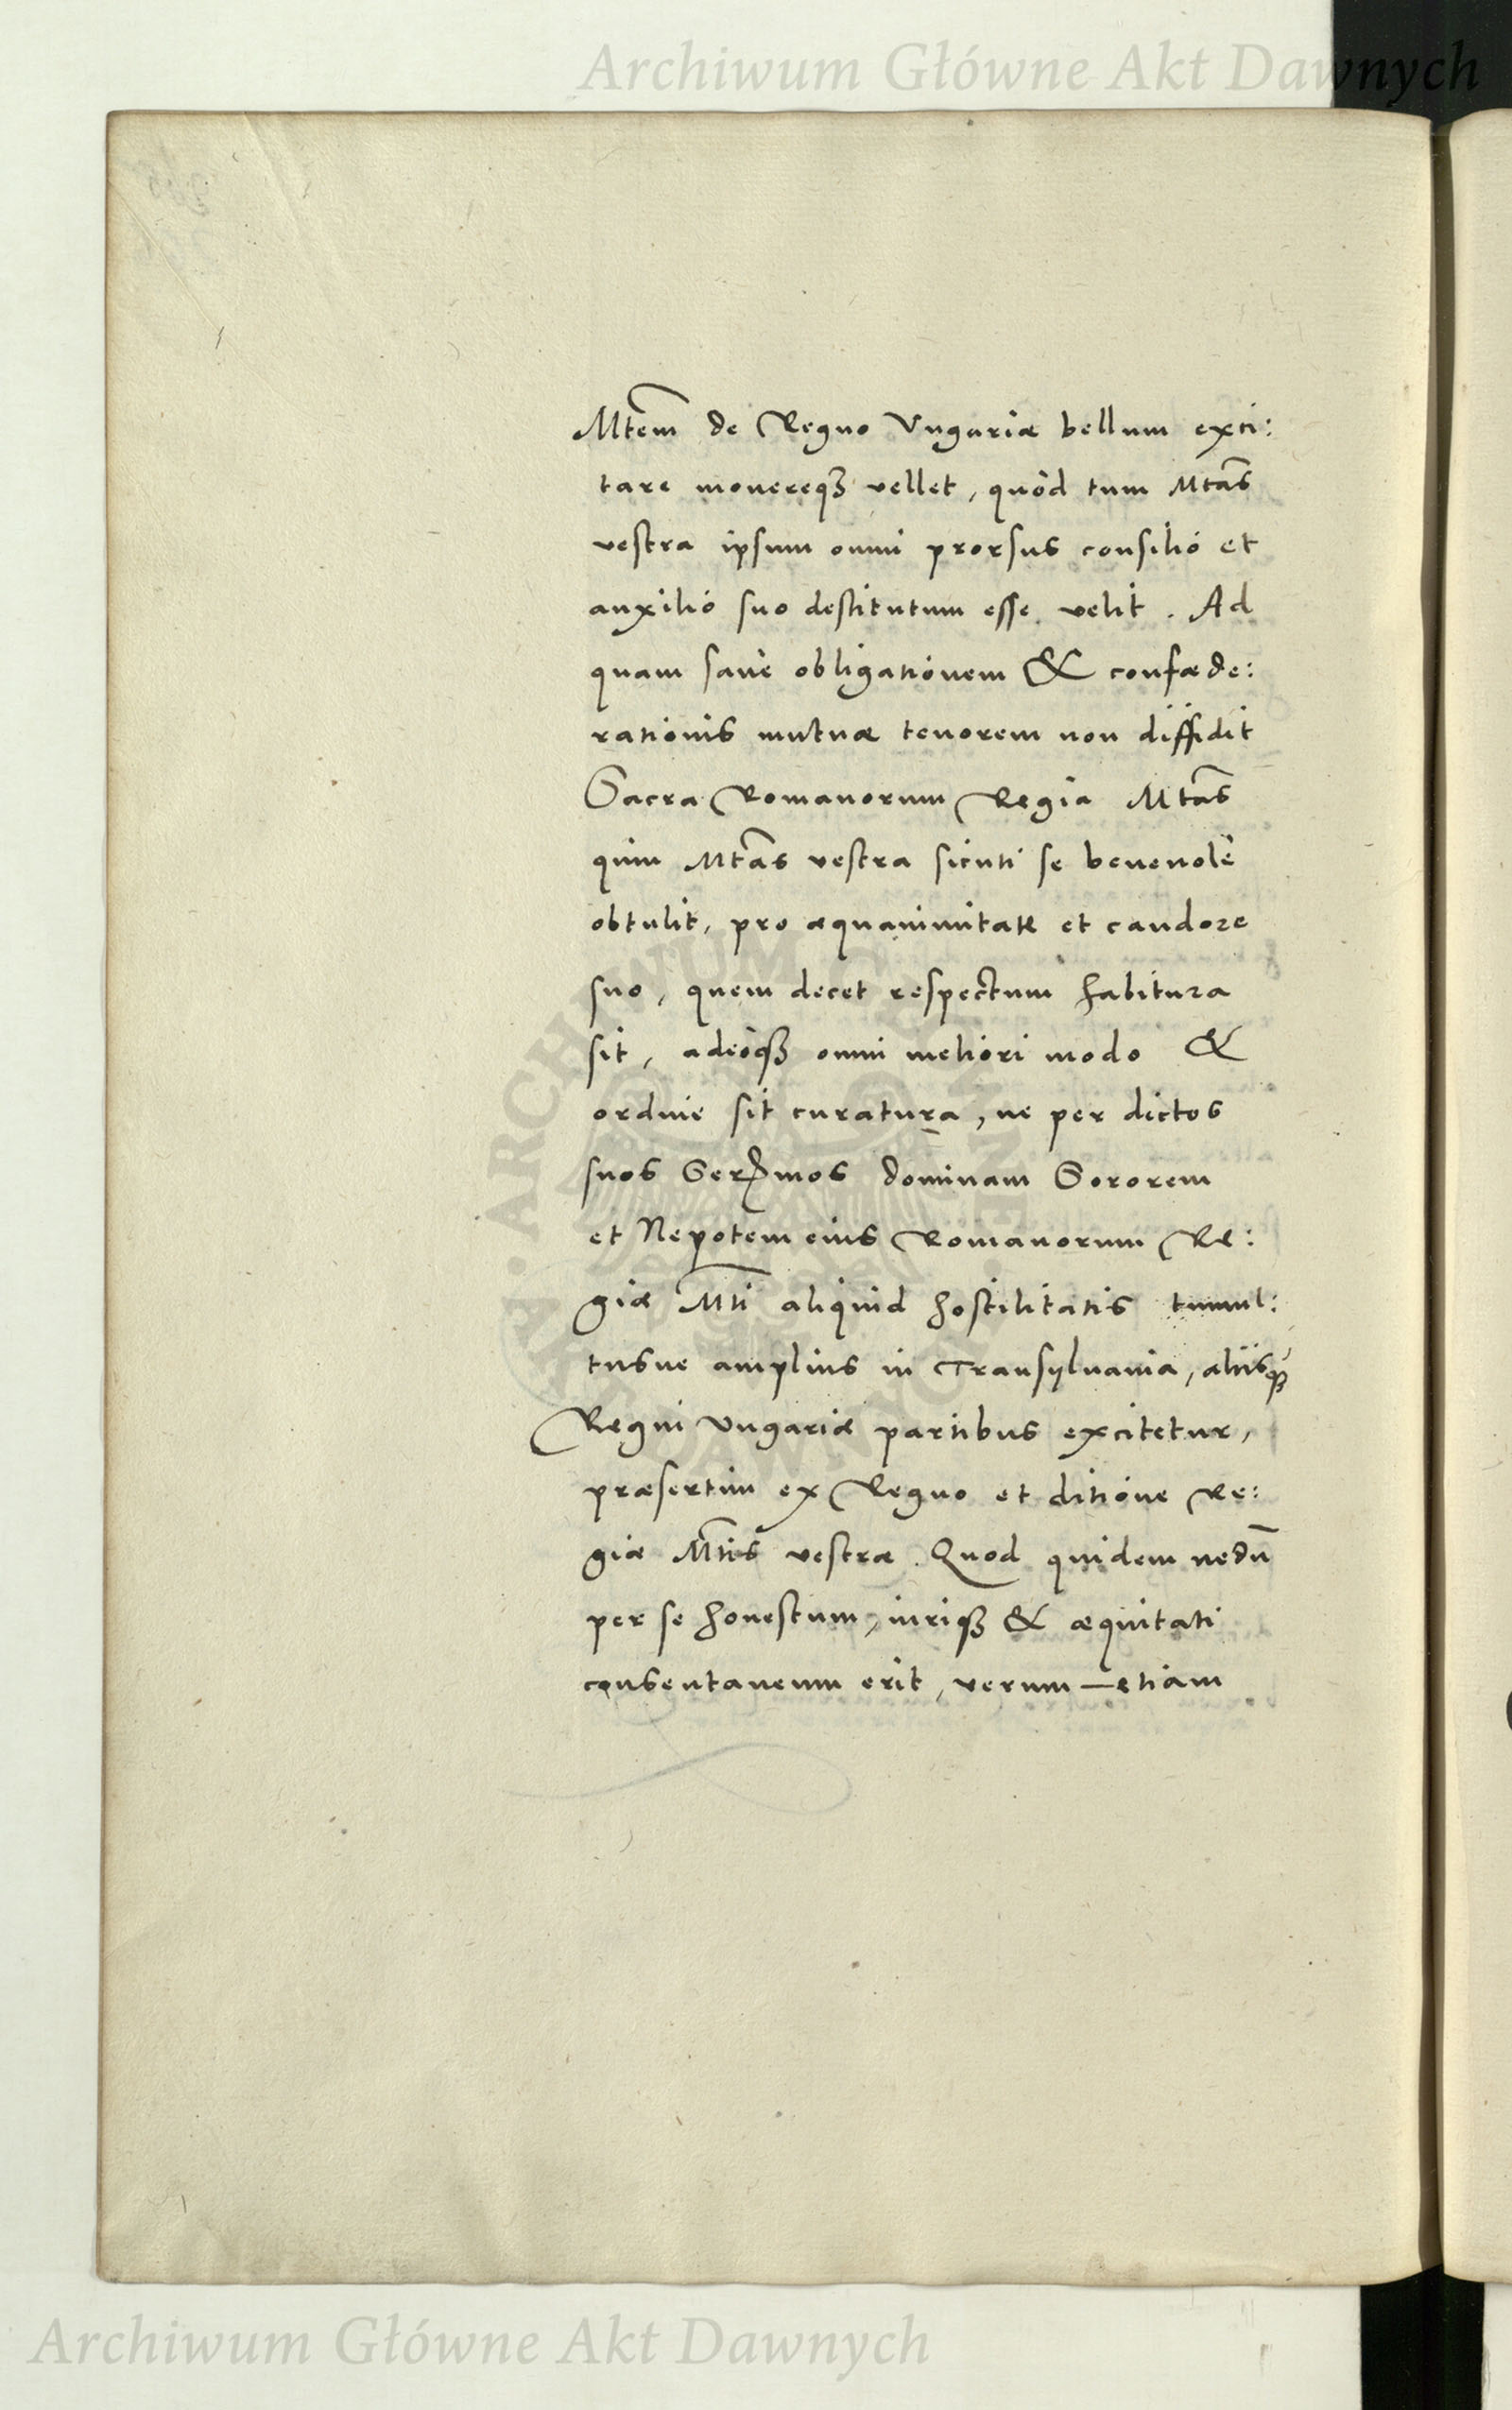 Archiwum Główne Akt Dawnych
Mtem de Regno Vngariæ bellum exci:
tare mouereq3 vellet, quòd tum Mtas
vestra ipsum omni prorsus consilió et
auxilió suo destitutum esse velit. Ad
quam sanè obligationem & confæde:
rationis mutuæ tenorem non diffidit
Sacra Romanorum Regia Mtas
quin Mtas vestra sicuti se beneuolè
obtulit, pro æquanimitate et candore
suo, quem decet respectum habitura
sit, adeòq3 omni meliori modo &
ordine sit curatura, ne per dictos
suos Sermos dominam Sororem
et Nepotem eius Romanorum Re:
giæ Mti aliquid hostilitatis tumul:
tusue amplius in Transyluania, aliisq3
Regni Vngariæ partibus excitetur,
præsertim ex Regno et ditione Re:
giæ Mtis vestræ. Quod quidem nedū
per se honestum, iuriq3 & æquitati
consentaneum erit, verum etiam
ARCHIWUM GŁÓWNE AKT DAWNYCH
Archiwum Główne Akt Dawnych